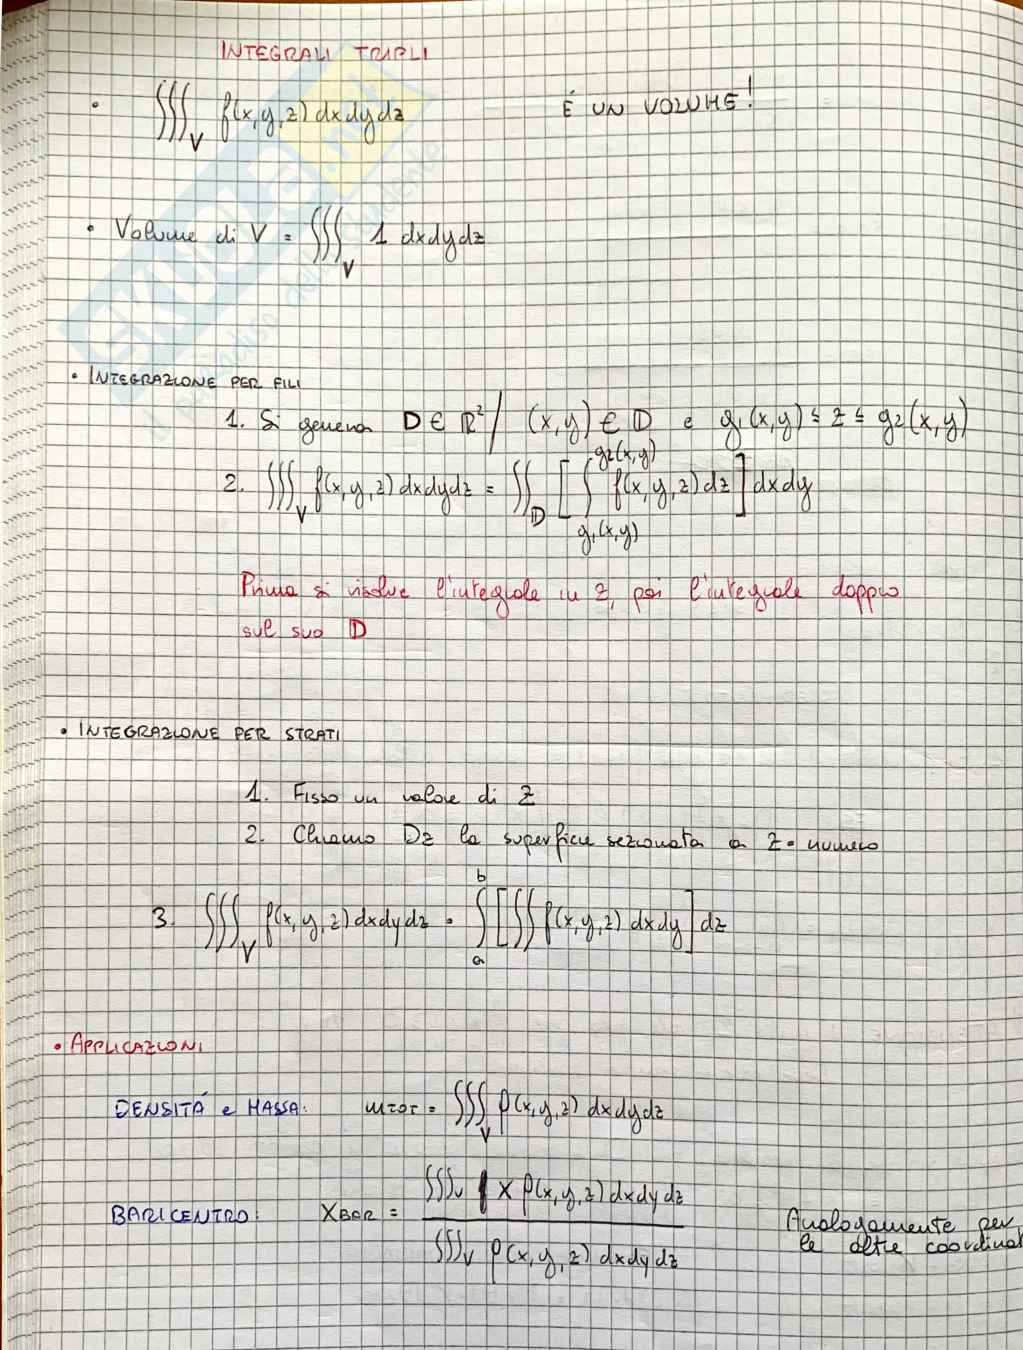 INTEGRALI TRIPLI
• ∭_V f(x,y,z) dxdydz É UN VOLUME!
• Volume di V = ∭_V 1 dxdydz
• INTEGRAZIONE PER FILI
1. Si genera D ∈ ℝ² / (x,y) ∈ D e g₁(x,y) ≤ z ≤ g₂(x,y)
2. ∭_V f(x,y,z) dxdydz = ∬_D [ ∫_{g₁(x,y)}^{g₂(x,y)} f(x,y,z) dz ] dxdy
Prima si risolve l'integrale in z, poi l'integrale doppio
sul suo D
• INTEGRAZIONE PER STRATI
1. Fisso un valore di z
2. Chiamo Dz la superficie sezionata a z = numero
3. ∭_V f(x,y,z) dxdydz = ∫_a^b [ ∬ f(x,y,z) dxdy ] dz
• APPLICAZIONI
DENSITÁ e MASSA: mTOT = ∭_V ρ(x,y,z) dxdydz
BARICENTRO: XBAR = ∭_V x ρ(x,y,z) dxdydz / ∭_V ρ(x,y,z) dxdydz
Analogamente per
le altre coordinat
SKUOLA.net
il paradiso dello studente